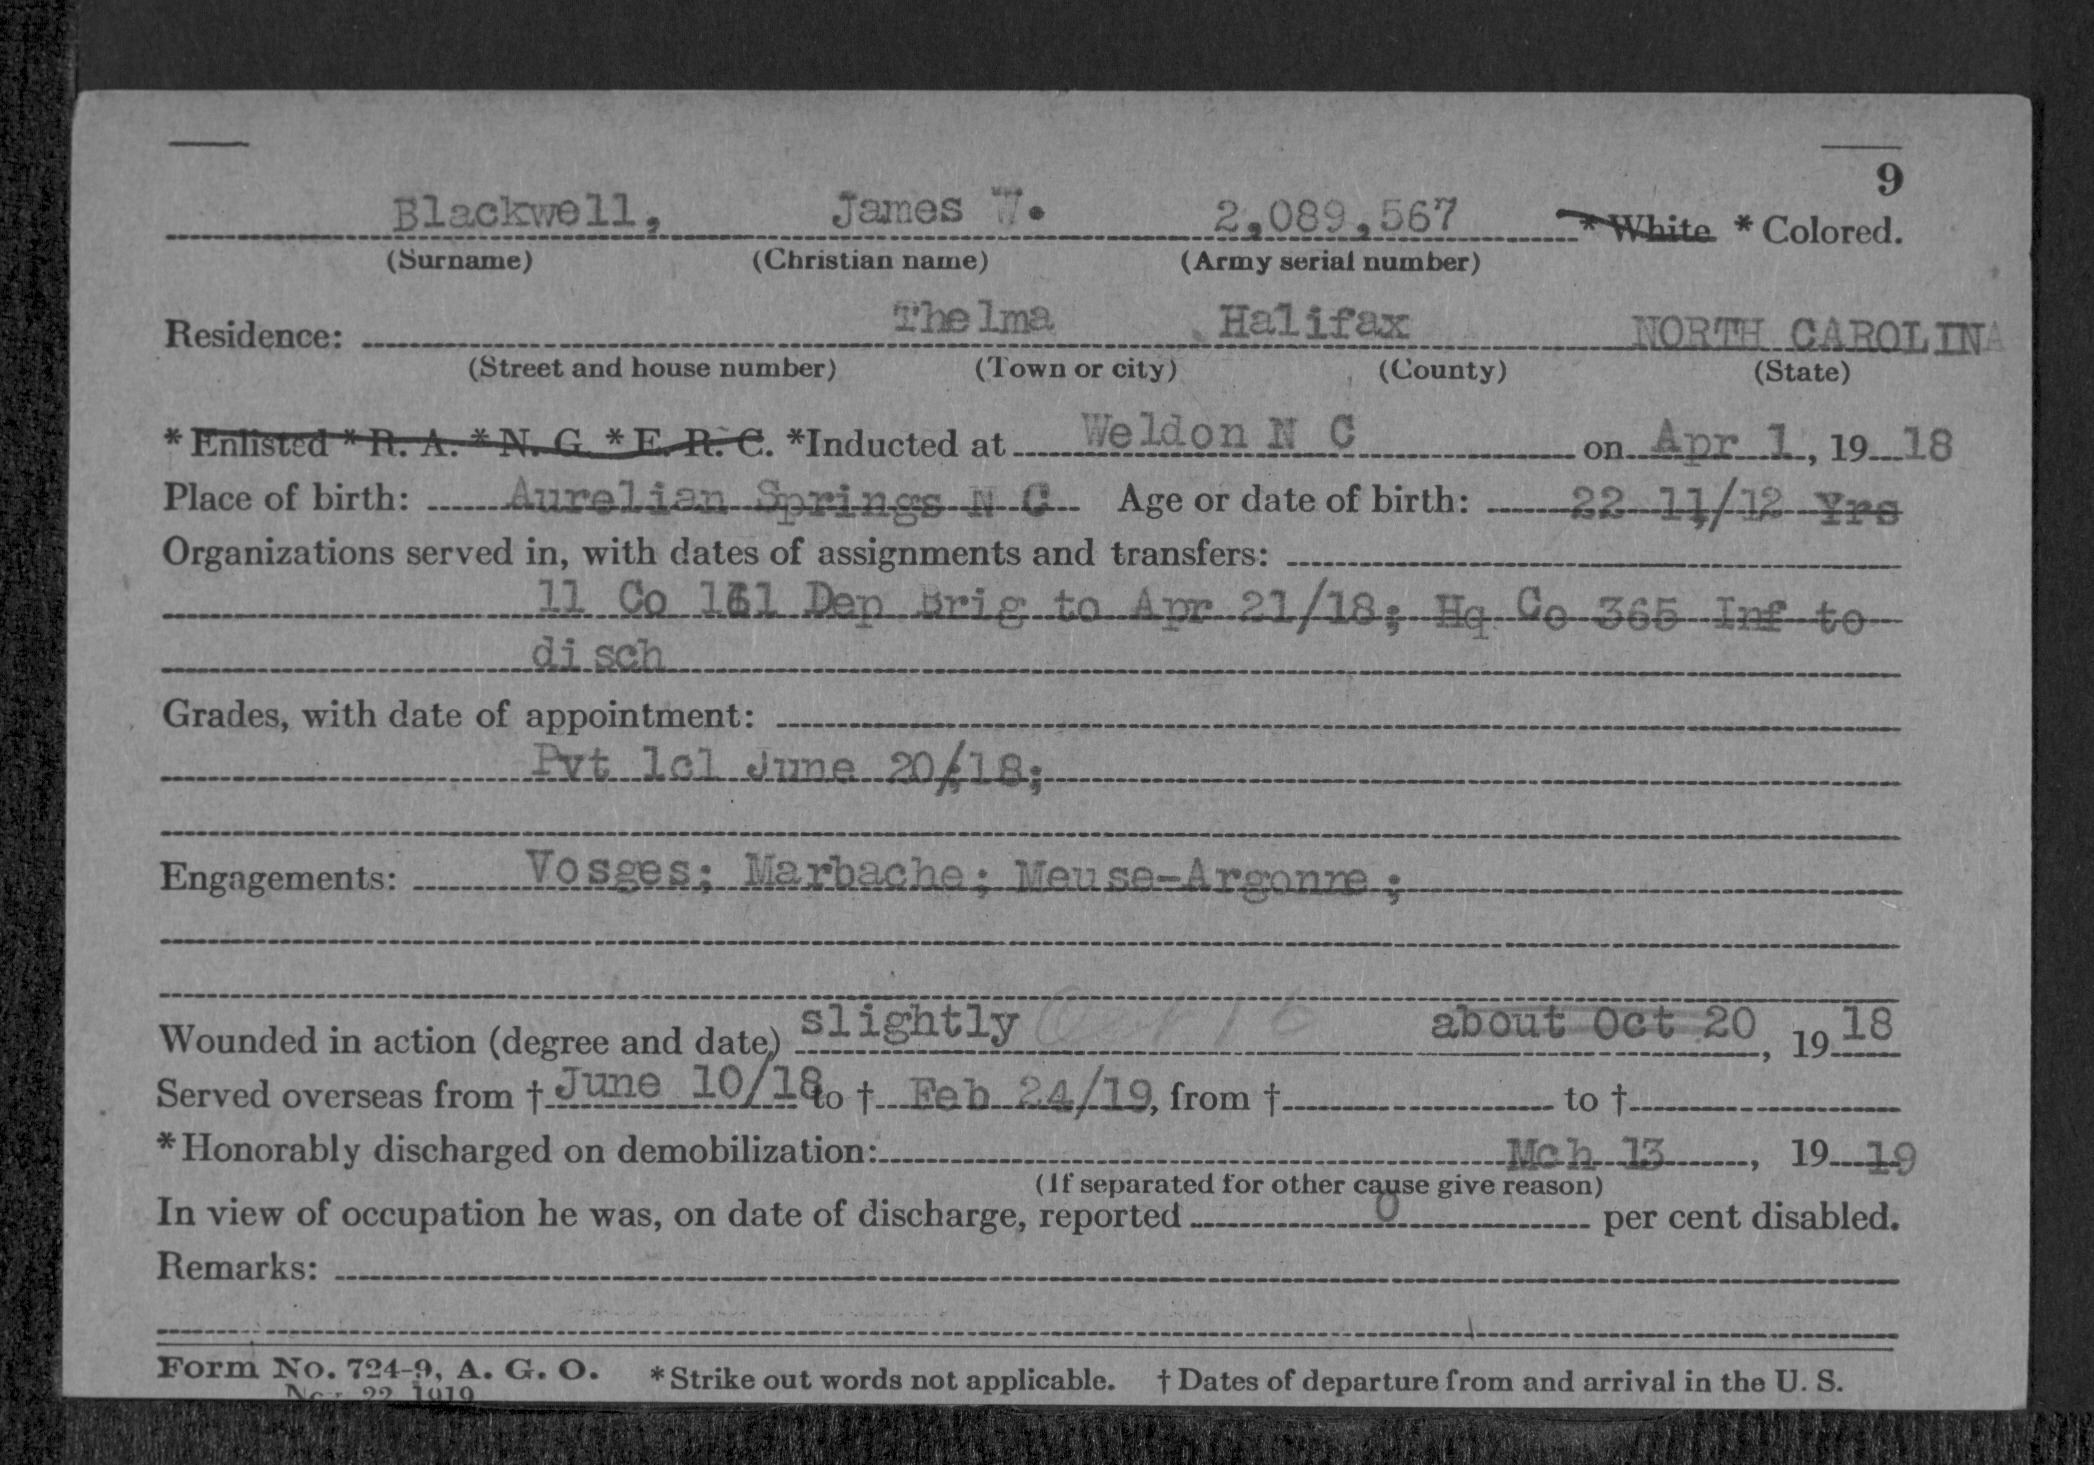 9
Blackwell, James W. 2,089,567 * White * Colored.
(Surname) (Christian name) (Army serial number)
Residence: Thelma Halifax NORTH CAROLINA
(Street and house number) (Town or city) (County) (State)
* Enlisted * R. A. * N. G. * E. R. C. *Inducted at Weldon N C on Apr 1, 19 18
Place of birth: Aurelian Springs N C Age or date of birth: 22 11/12 Yrs
Organizations served in, with dates of assignments and transfers:
11 Co 161 Dep Brig to Apr 21/18; Hq Co 365 Inf to
disch
Grades, with date of appointment:
Pvt 1cl June 20/18;
Engagements: Vosges; Marbache; Meuse-Argonne;
Wounded in action (degree and date) slightly about Oct 20, 19 18
Served overseas from † June 10/18 to † Feb 24/19, from † to †
*Honorably discharged on demobilization: Mch 13, 19 19
(If separated for other cause give reason)
In view of occupation he was, on date of discharge, reported 0 per cent disabled.
Remarks:
Form No. 724-9, A. G. O. *Strike out words not applicable. † Dates of departure from and arrival in the U. S.
22 1919